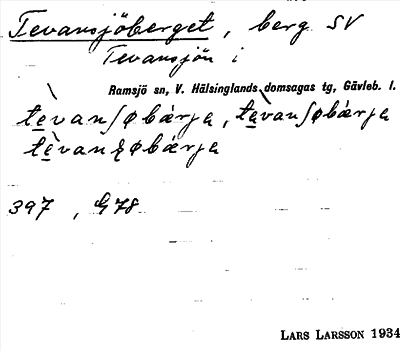 Tevansjöberget, berg SV
Tevansjön i
Ramsjö sn, V. Hälsinglands domsagas tg, Gävleb. l.
tèvanʃøbárja, tèvanʃøbárja
tèvanʂøbárja
397, G78
LARS LARSSON 1934